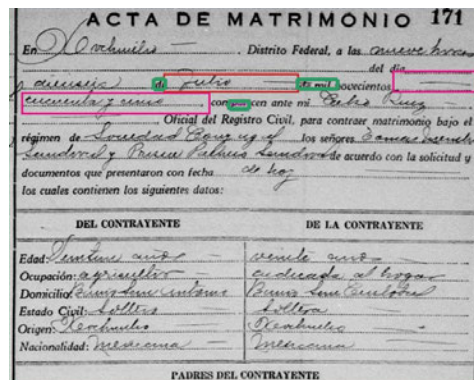 ACTA DE MATRIMONIO 171
En Xochimilco, Distrito Federal, a las nueve horas
del día
dieciseis de Julio de mil novecientos
cincuenta y cinco comparecen ante mi Ruiz
Oficial del Registro Civil, para contraer matrimonio bajo el
régimen de Sociedad Conyugal los señores
Sandoval y de acuerdo con la solicitud y
documentos que presentaron con fecha de hoy
los cuales contienen los siguientes datos:
DEL CONTRAYENTE DE LA CONTRAYENTE
Edad: años veinte años
Ocupación: agricultor dedicada al hogar
Domicilio: Barrio San Antonio Barrio San
Estado Civil: Soltero Soltera
Origen: Xochimilco Xochimilco
Nacionalidad: Mexicana Mexicana
PADRES DEL CONTRAYENTE